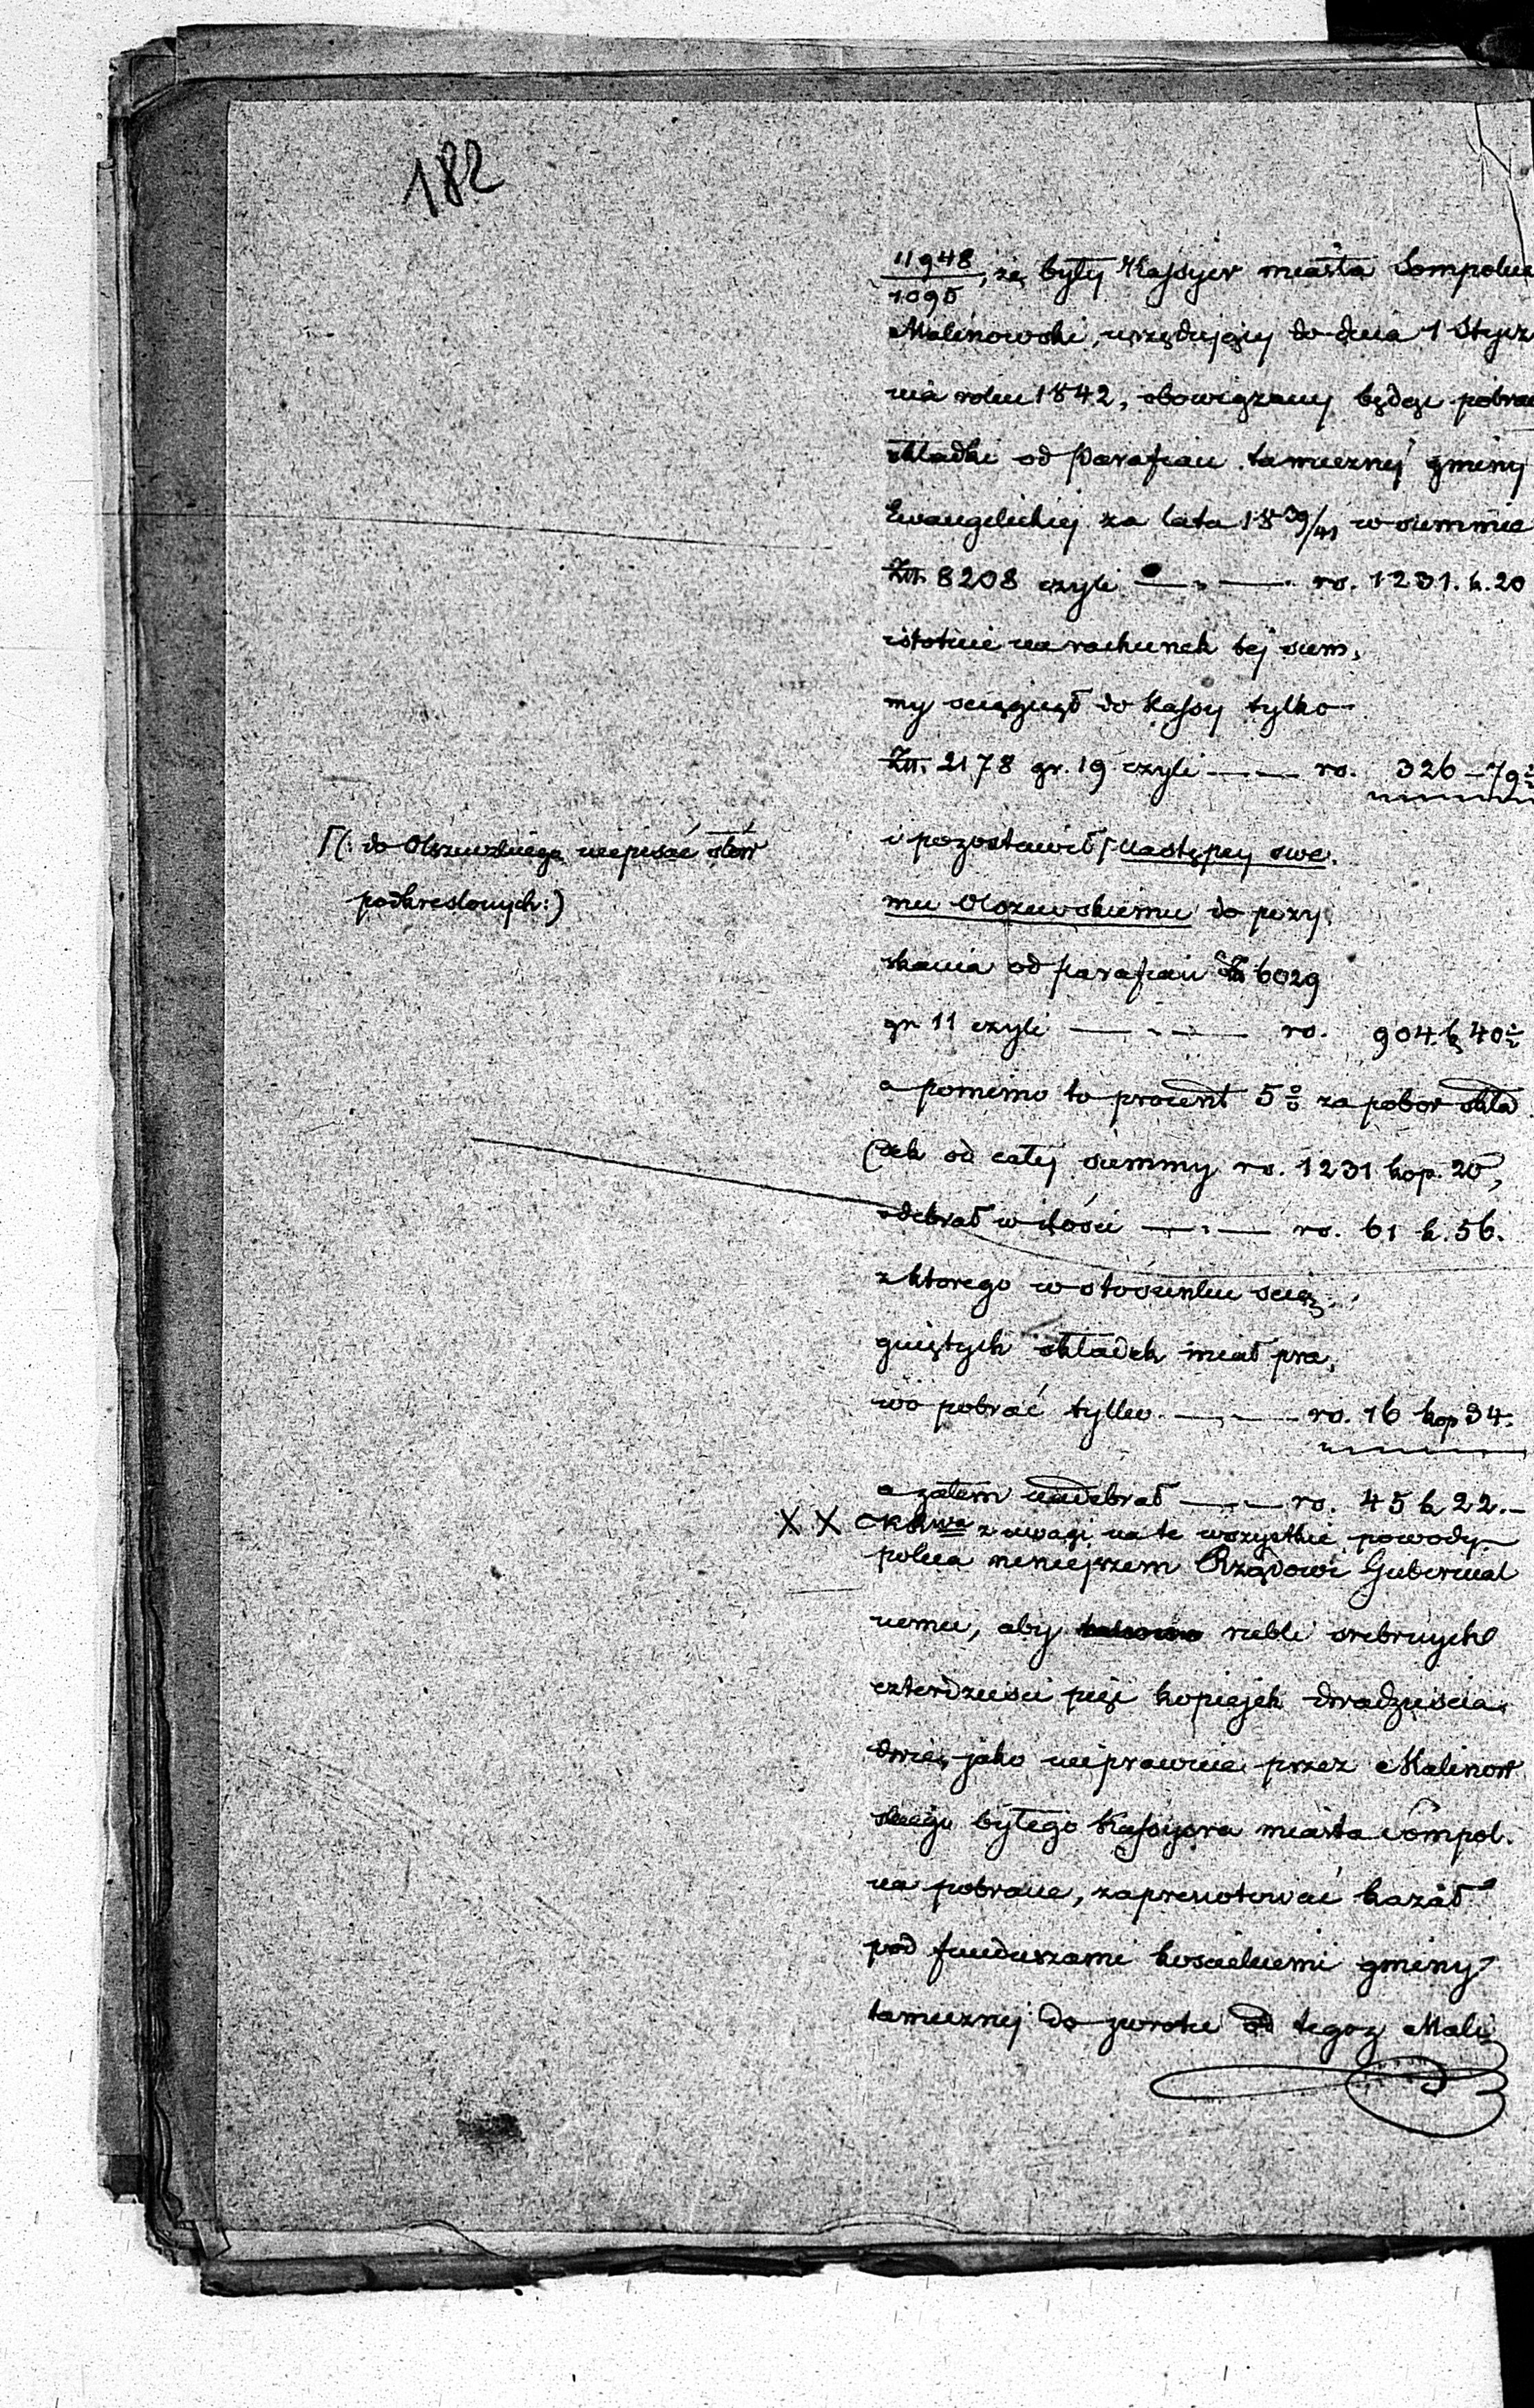 182
11948/1095, że były Kassyer miasta Sompolna
Malinowski, urzędujący do dnia 1 Stycz
nia roku 1842, obowiązany będąc pobrać
składki od Parafian tamecznej gminy
Ewangelickiej za lata 18 39/41 w summie
Złt. 8208 czyli — „ — rs. 1231. k. 20
istotnie na rachunek tej sum,
my ściągnął do Kassy tylko
Złt. 2178 gr. 19 czyli — — rs. 326 — 79½
Γ(: do Olszewskiego niepisać słów
podkreslonych:)
i pozostawił Γ następcy swe.
mu Olszewskiemu do pozy
skania od parafian Złt 6029
gr. 11 czyli — „ — rs. 904. k 40½
a pomimo to procent 5% za pobor skła
dek od całej summy rs. 1231 kop. 20,
odebrał w ilości — „ — rs. 61 k. 56.
z ktorego w stosunku scią
gniętych składek miał pra,
wo pobrać tylko — „ — rs. 16 kop 34.
a zatem nadebrał — „ — rs. 45 k 22. –
X X z uwagi na te wszystkie powody
poleca niniejszem Rządowi Gubernial
nemu, aby rubli srebrnych
czterdzieści pięć kopiejek dwadzieścia
dwie, jako nieprawnie przez Malinow
skiego byłego Kassyera miasta Sompol.
na pobrane, zaprenotować kazał
pod funduszami koscielnemi gminy
tamecznej do zwrotu od tegoż Mali